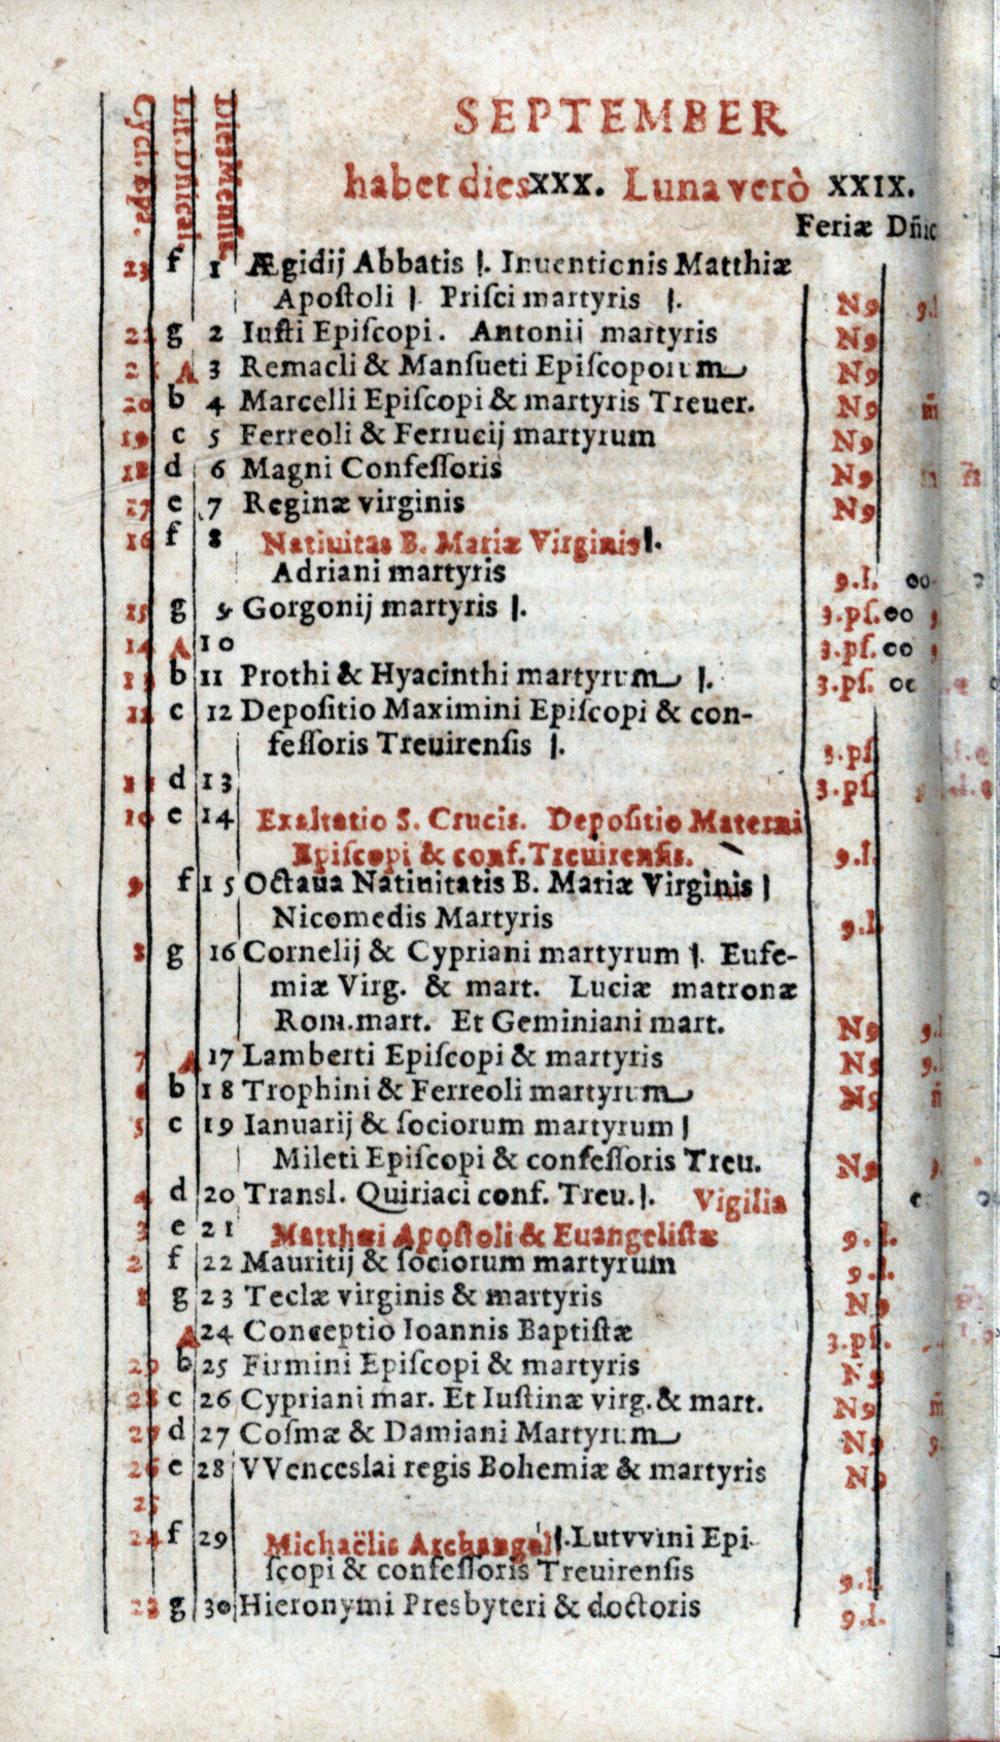 SEPTEMBER
habet dies XXX. Luna verò XXIX.
Cycl. Epa. Lit. Dñical. Dies Mensis.
Feriæ Dñic
23 f 1 Ægidij Abbatis ſ. Inuentionis Matthiæ
Apoſtoli ſ. Priſci martyris ſ. N9
22 g 2 Iuſti Epiſcopi. Antonii martyris N9
21 A 3 Remacli & Manſueti Epiſcoporum N9
20 b 4 Marcelli Epiſcopi & martyris Treuer. N9
19 c 5 Ferreoli & Ferrucij martyrum N9
18 d 6 Magni Confeſſoris N9
17 e 7 Reginæ virginis N9
16 f 8 Natiuitas B. Mariæ Virginis ſ.
Adriani martyris 9.l. oo
15 g 9 Gorgonij martyris ſ. 3.pſ. oo
14 A 10 3.pſ. oo
13 b 11 Prothi & Hyacinthi martyrum ſ. 3.pſ. oo
12 c 12 Depoſitio Maximini Epiſcopi & con-
feſſoris Treuirenſis ſ. 3.pſ
11 d 13 3.pſ.
10 e 14 Exaltatio S. Crucis. Depoſitio Materni
Epiſcopi & conf. Treuirenſis. 9.l.
9 f 15 Octaua Natiuitatis B. Mariæ Virginis ſ
Nicomedis Martyris 9.l.
8 g 16 Cornelij & Cypriani martyrum ſ. Eufe-
miæ Virg. & mart. Luciæ matronæ
Rom. mart. Et Geminiani mart. N9
7 A 17 Lamberti Epiſcopi & martyris N9
6 b 18 Trophini & Ferreoli martyrum N9
5 c 19 Ianuarij & ſociorum martyrum ſ
Mileti Epiſcopi & confeſſoris Treu. N9
4 d 20 Tranſl. Quiriaci conf. Treu. ſ. Vigilia
3 e 21 Matthæi Apoſtoli & Euangeliſtæ 9.l.
2 f 22 Mauritij & ſociorum martyrum 9.l.
1 g 23 Teclæ virginis & martyris N9
A 24 Conceptio Ioannis Baptiſtæ 3.pſ.
29 b 25 Firmini Epiſcopi & martyris N9
28 c 26 Cypriani mar. Et Iuſtinæ virg. & mart. N9
27 d 27 Coſmæ & Damiani Martyrum N9
26 e 28 VVenceslai regis Bohemiæ & martyris N9
25
24 f 29 Michaëlis Archangeli ſ. Lutvvini Epi-
ſcopi & confeſſoris Treuirenſis 9.l.
23 g 30 Hieronymi Presbyteri & doctoris 9.l.